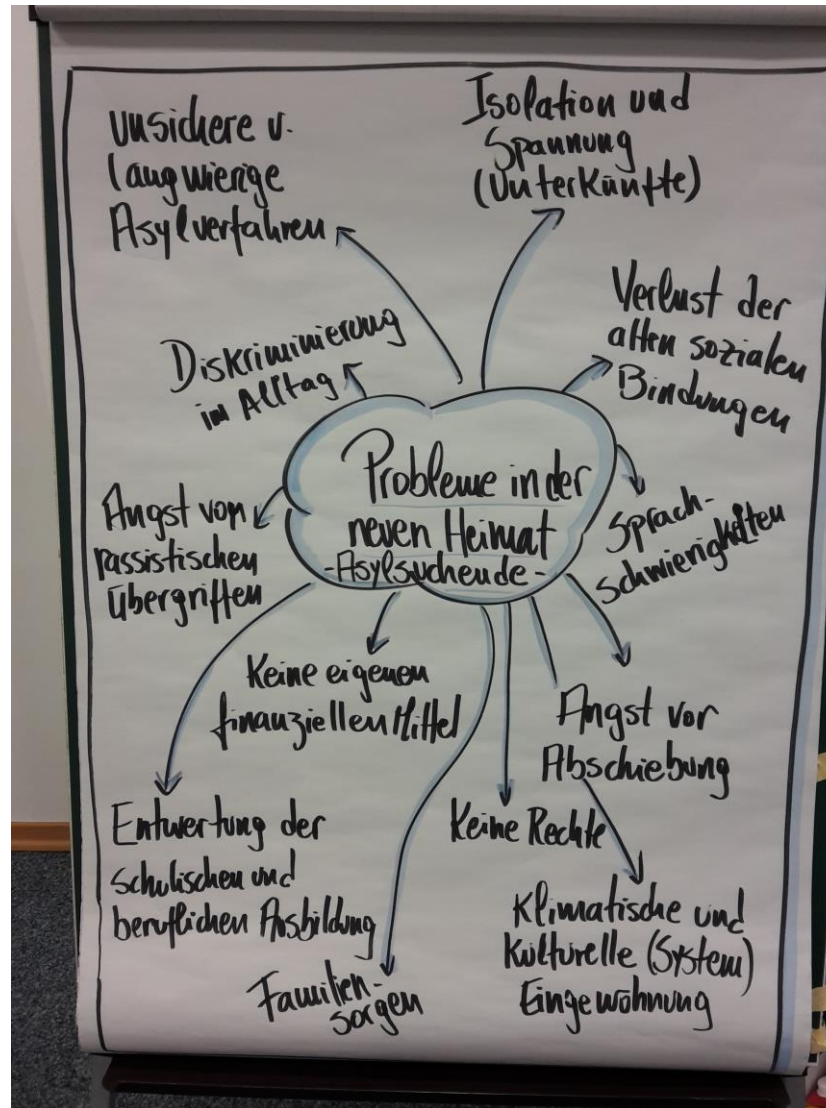 Unsichere u.
langwierige
Asylverfahren
Isolation und
Spannung
(Unterkünfte)
Diskriminierung
im Alltag
Verlust der
alten sozialen
Bindungen
Probleme in der
neuen Heimat
-Asylsuchende-
Angst von
rassistischen
Übergriffen
Sprach-
schwierigkeiten
Keine eigenen
finanziellen Mittel
Angst vor
Abschiebung
Entwertung der
schulischen und
beruflichen Ausbildung
Keine Rechte
Familien-
sorgen
Klimatische und
Kulturelle (System)
Eingewöhnung